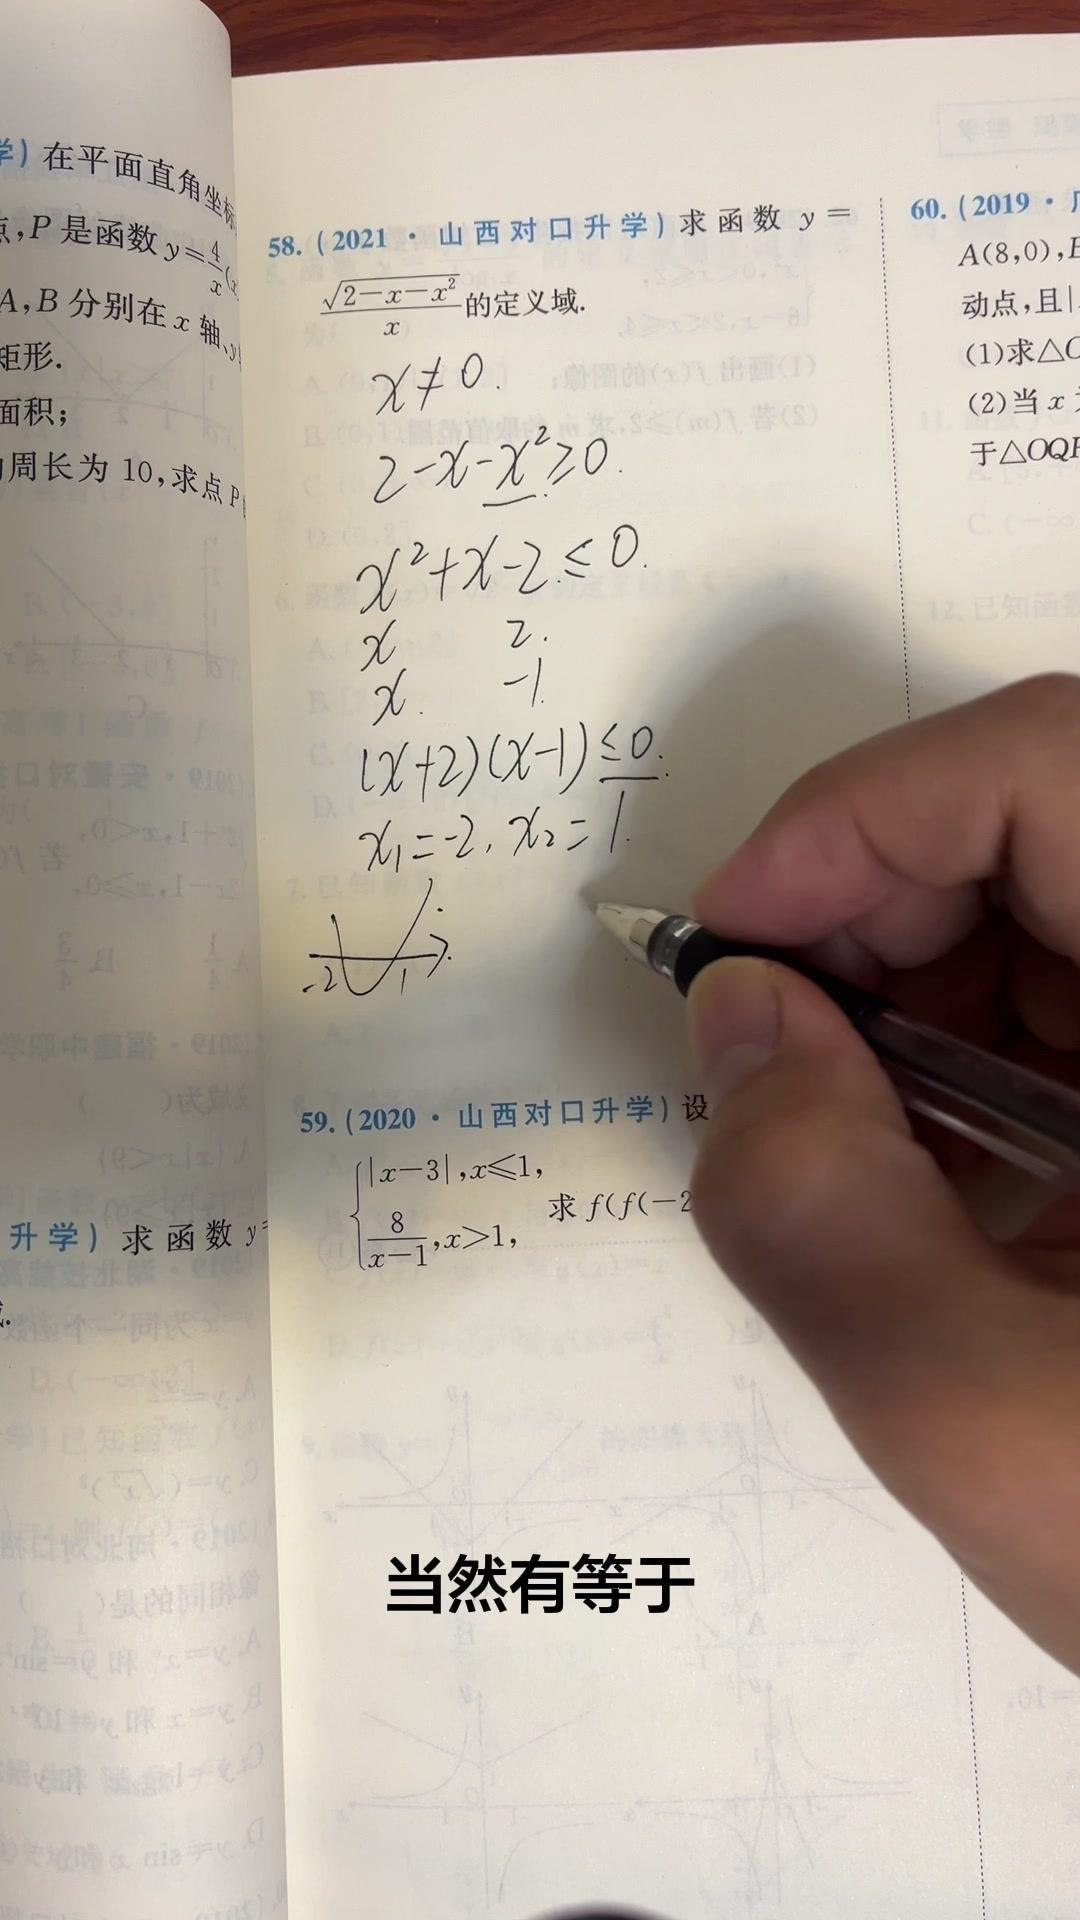 学)在平面直角坐标
点,P是函数y=4/x(x
A,B分别在x轴、y
矩形.
面积;
周长为10,求点P
升学)求函数y=
58.(2021·山西对口升学)求函数y=
√(2-x-x²)/x的定义域.
x≠0.
2-x-x²≥0.
x²+x-2≤0.
x 2.
x. -1
(x+2)(x-1)≤0.
x₁=-2, x₂=1.
-2 1
59.(2020·山西对口升学)设
|x-3|,x≤1,
8/(x-1),x>1,
求f(f(-2
60.(2019·广
A(8,0),B
动点,且|
(1)求△O
(2)当x
于△OQP
当然有等于